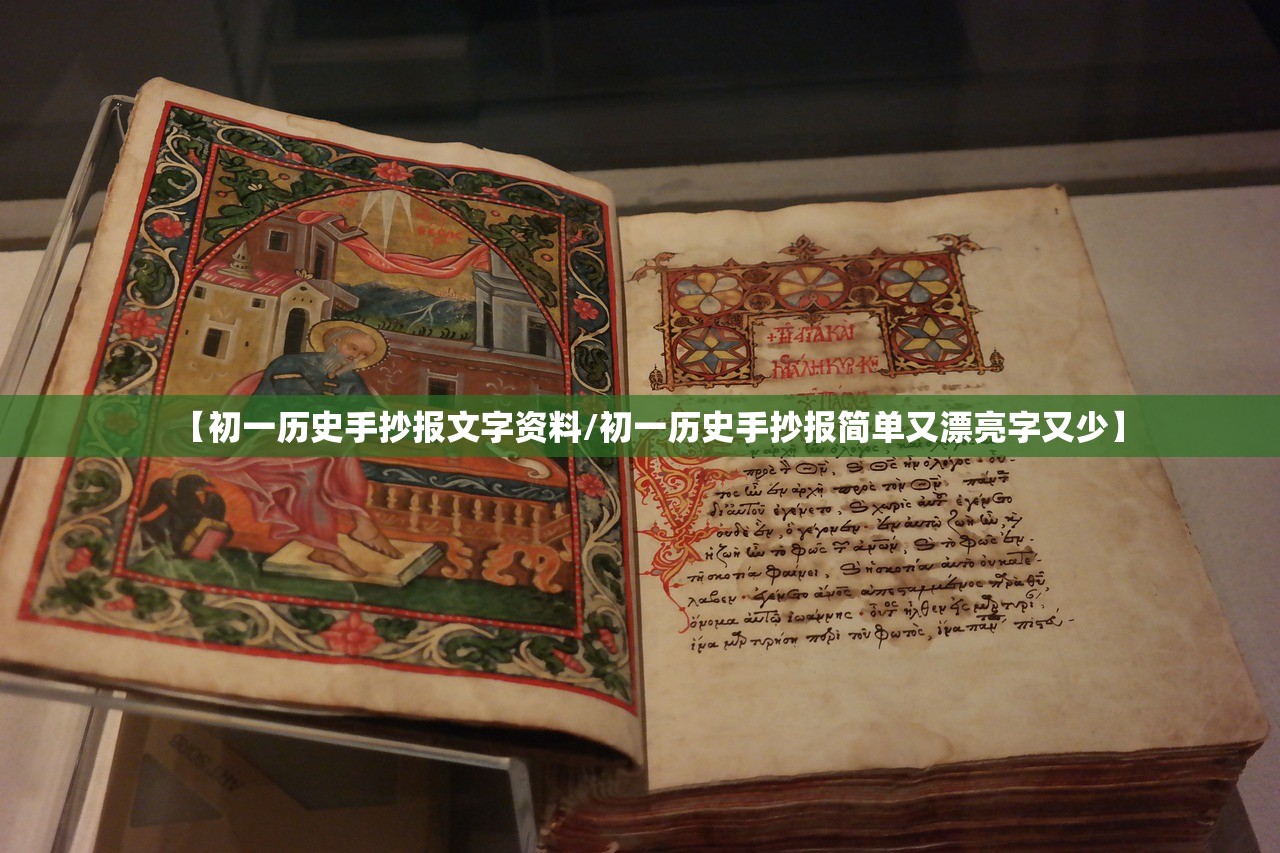 【初一历史手抄报文字资料/初一历史手抄报简单又漂亮字又少】
πρὸς τ Θν, ϗ Θς ἦν ὁ λόγος· οὗ-
τος ἦν ἐν ἀρχῇ πρὸς τὸν Θν. πάντ
δι' αὐτοῦ ἐγένετο, ϗ χωρὶς αὐτ ἐγένετο
οὐδὲ ἕν, ὃ γέγονεν· ἐν αὐτῷ ζωὴ ἦν, ϗ
ἡ ζωὴ ἦν τὸ φῶς τ ἀνων, ϗ τὸ φῶς ἐν
τῇ σκοτίᾳ φαίνει, ϗ ἡ σκοτία αὐτὸ οὐ κατέ-
λαβεν· ἐγένετο ἄνος ἀπεσταλμένος πρὰ θυ,
ὄνομα αὐτῷ ἰωάννης· οὗτος ἦλθεν εἰς μρτυρί,
ἵνα μρτυρήσῃ περὶ τοῦ φωτός, ἵνα παν πιστεύ-